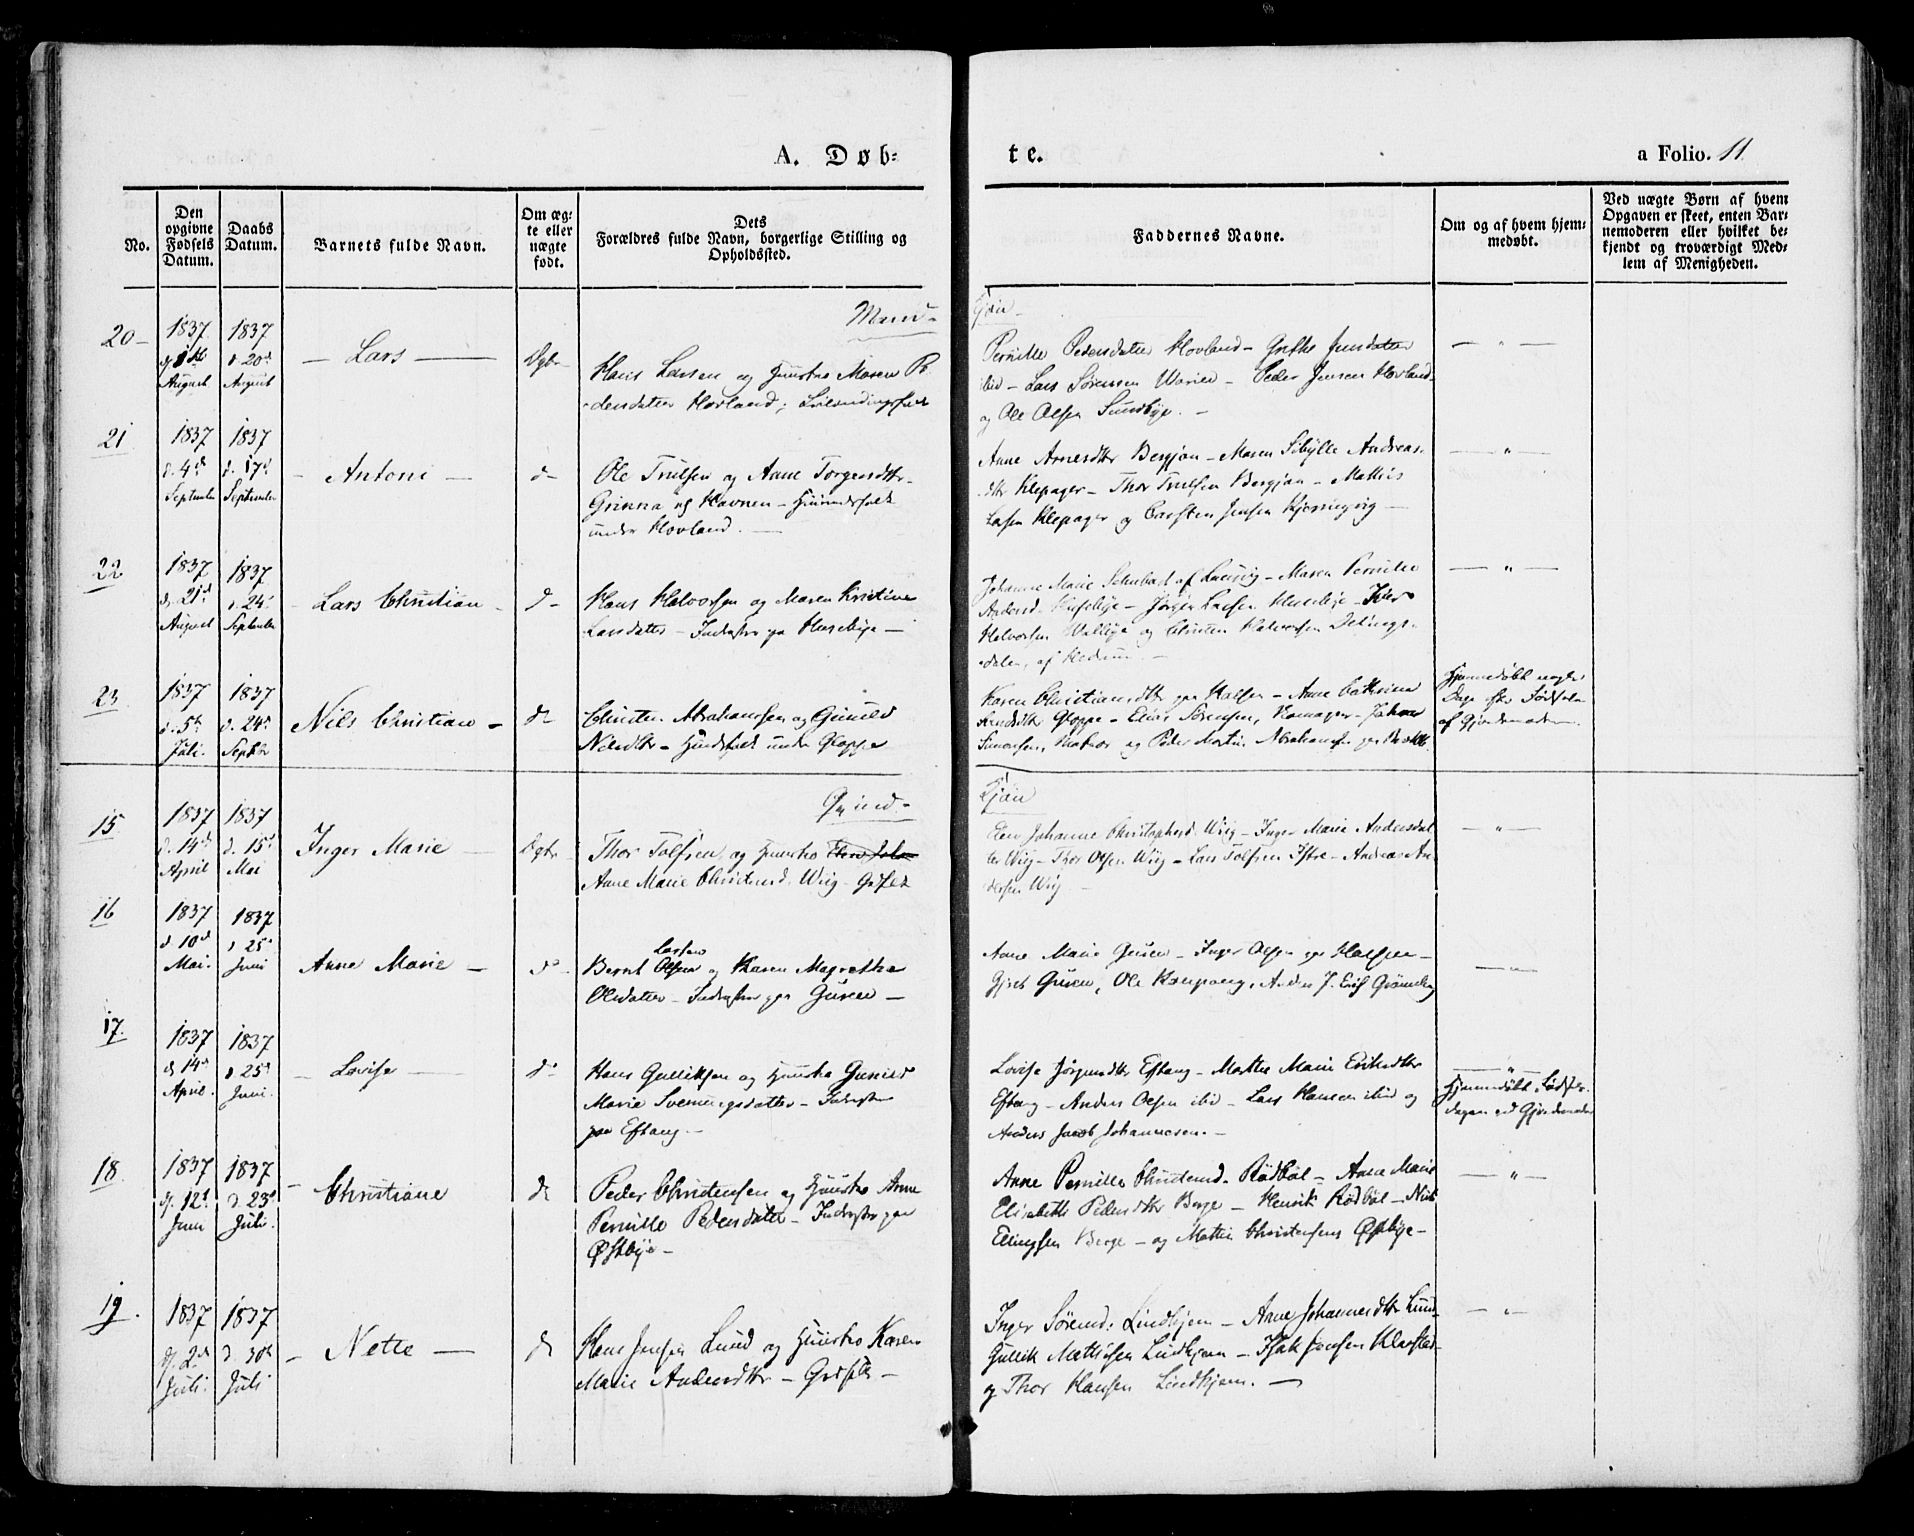 A. Døb=
te.
a Folio. 11
No.
Den opgivne Fødsels Datum.
Daabs Datum.
Barnets fulde Navn.
Om ægte eller uægte født.
Dets Forældres fulde Navn, borgerlige Stilling og Opholdssted.
Faddernes Navne.
Om og af hvem hjemmedøbt.
Ved uægte Børn af hvem Opgaven er skeet, enten Barnemoderen eller hvilket bekjendt og troværdigt Medlem af Menigheden.
Mand-
Kjøn-
20-
1837
August
1837
d. 20de
August
- Lars -
Hans Larsen og Huustro Maren Pe
-dersdatter Hovland;
Pernille Pedersdatter Hovland - Grethe Jensdatter
ibid - Lars Sørensen - Peder Jensen Hovland
og Ole Olsen Sundbye. -
- " -
21
1837
d. 4de
September
1837
d. 17de
September
- Antoni -
d-
Ole Trulsen og Anne Torgersdtr
Grinna og Havnen -
under Hovland. -
Anne Arnesdtr Bergjan - Maren Sibylle Andreas-
dtr Klepager - Thor Trulsen Bergjan - Mathis
Larsen Klepager og Carsten Jensen Kjerringvig -
- " -
22
1837
d. 21de
August
1837
d. 24de
September
- Lars Christian -
d-
Hans Halvorsen og Maren Kristine
Larsdatter - Inderster paa Huseebye -
Johanne Marie Schubart af Laurvig - Maren Pernille
Andersd. Huseebye - Jørgen Larsen Huseebye - Iver
Halvorsen og Christen Halvorsen
dalen, af Hedrum. -
- " -
23
1837
d. 5te
Juli.
1837
d. 24de
Septbr
Nils Christian -
do
Christen Abrahamsen og Gunild
Nilsdtr - Huusfolk under Gloppe
Karen Christiansdtr paa Halsen - Anne Cathrine
Gloppe - Sørensen,
Simonsen, Matros og Peder Martin Abrahamsen
Hjemmedøbt nogle
Dage efter Fødselen
af Gjordemoderen
Qvind-
Kjøn
15
1837
d. 14de
April
1837
d. 15de
Mai
Inger Marie -
Thor Tolfsen, og Huustro
Anne Marie Christensd. Wiig -
Johanne Christophersd. Wiig - Inger Marie Andersdat
ter Wiig - Thor Olsen Wiig - Lars Tolfsen Istre - Andreas An
dersen Wiig -
- " -
16
1837
d. 10de
Mai.
1837
d. 25de
Juni
Anne Marie -
do-
Larsen
Bernt Olsen og Karen Magrethe
Olsdatter - Inderster paa Guren -
Anne Marie Guren - Inger Olsen paa Halsen -
Guren, Ole Kaupang, Anders J.
- " -
17.
1837
d. 14de
April.
1837
d. 25de
Juni.
- Lovise -
do
Hans Gulliksen og Huustro Gunild
Marie Svenningsdatter - Inderster
paa Eftang -
Lovise Jørgensdtr Eftang - Marthe Marie Eriksdtr
Eftang - Anders Olsen ibid - Lars Hansen ibid og
Anders Jacob Johannesen. -
- " -
Hjemmedøbt Fødsels-
dagen ved Gjordemoder
18
1837
d. 12te
Juni
1837
d. 23de
Juli.
- Christiane
do
Peder Christensen og Huustro Anne
Pernille Pedersdatter - Inderster paa
Østbye -
Anne Pernille Christensd. Rødbøl - Anne Marie
Elisabeth Pedersdtr Berge - Henrik Rødbøl - Niels
Ellingsen Berge - og Mathis Christensen Østbye -
- " -
19.
1837
d. 2de
Juli.
1837
d. 30te
Juli
- Nette -
do
Hans Jensen Lund og Huustro Karen
Marie Andersdtr -
Inger Sørensd: Lindhjem - Anne Johannesdtr Lund-
Gullik Mathisen Lindhjem - Isak Jensen Klavstad -
og Thor Hansen Lindhjem. -
- " -